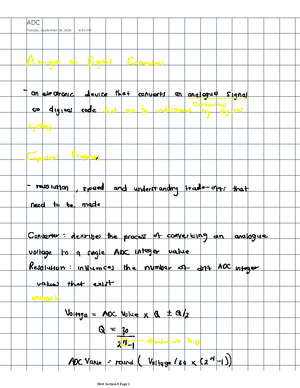 ADC
Tuesday, September 15, 2020
Analogue to Digital Converters
- an electronic device that converts an analogue signal
to digital code that can be understood by digital
system
- resolution, speed and understanding trade-offs that
need to be made
Converter: describes the process of converting an analogue
voltage to a single ADC integer value
Resolution: influences the number of diff ADC integer
values that exist
example
Voltage = ADC Value x Q ± Q/2
Q =
2^N-1
number of bits
ADC Value = round ( Voltage / x (2^N-1))
New Section 6 Page 1